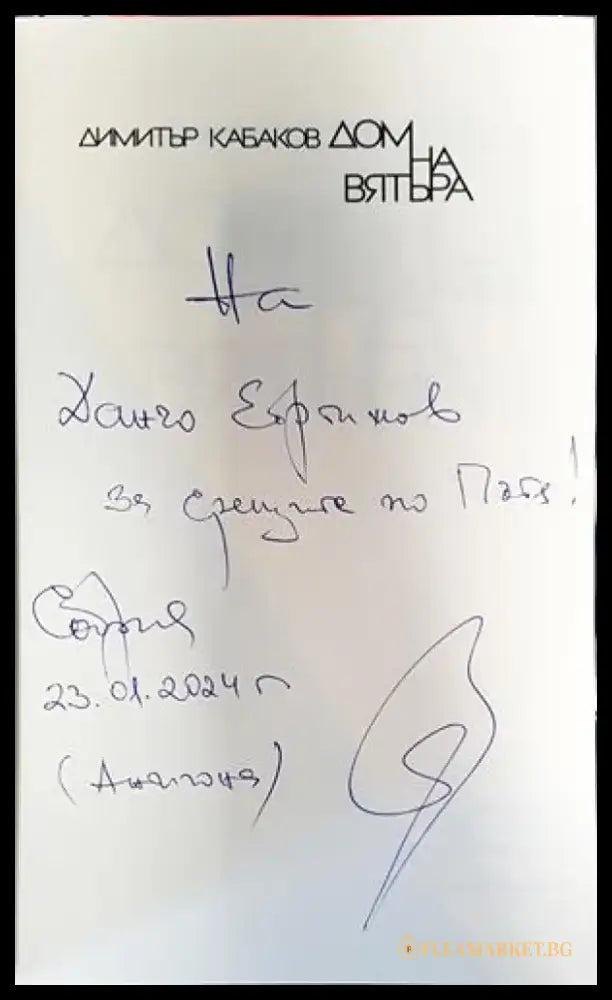 ДИМИТЪР КАБАКОВ ДОМ
НА
ВЯТЪРА
На
Данчо Ефтимов
за срещите по Пътя!
София
23.01.2024 г
(Антигона)
FLEAMARKET.BG